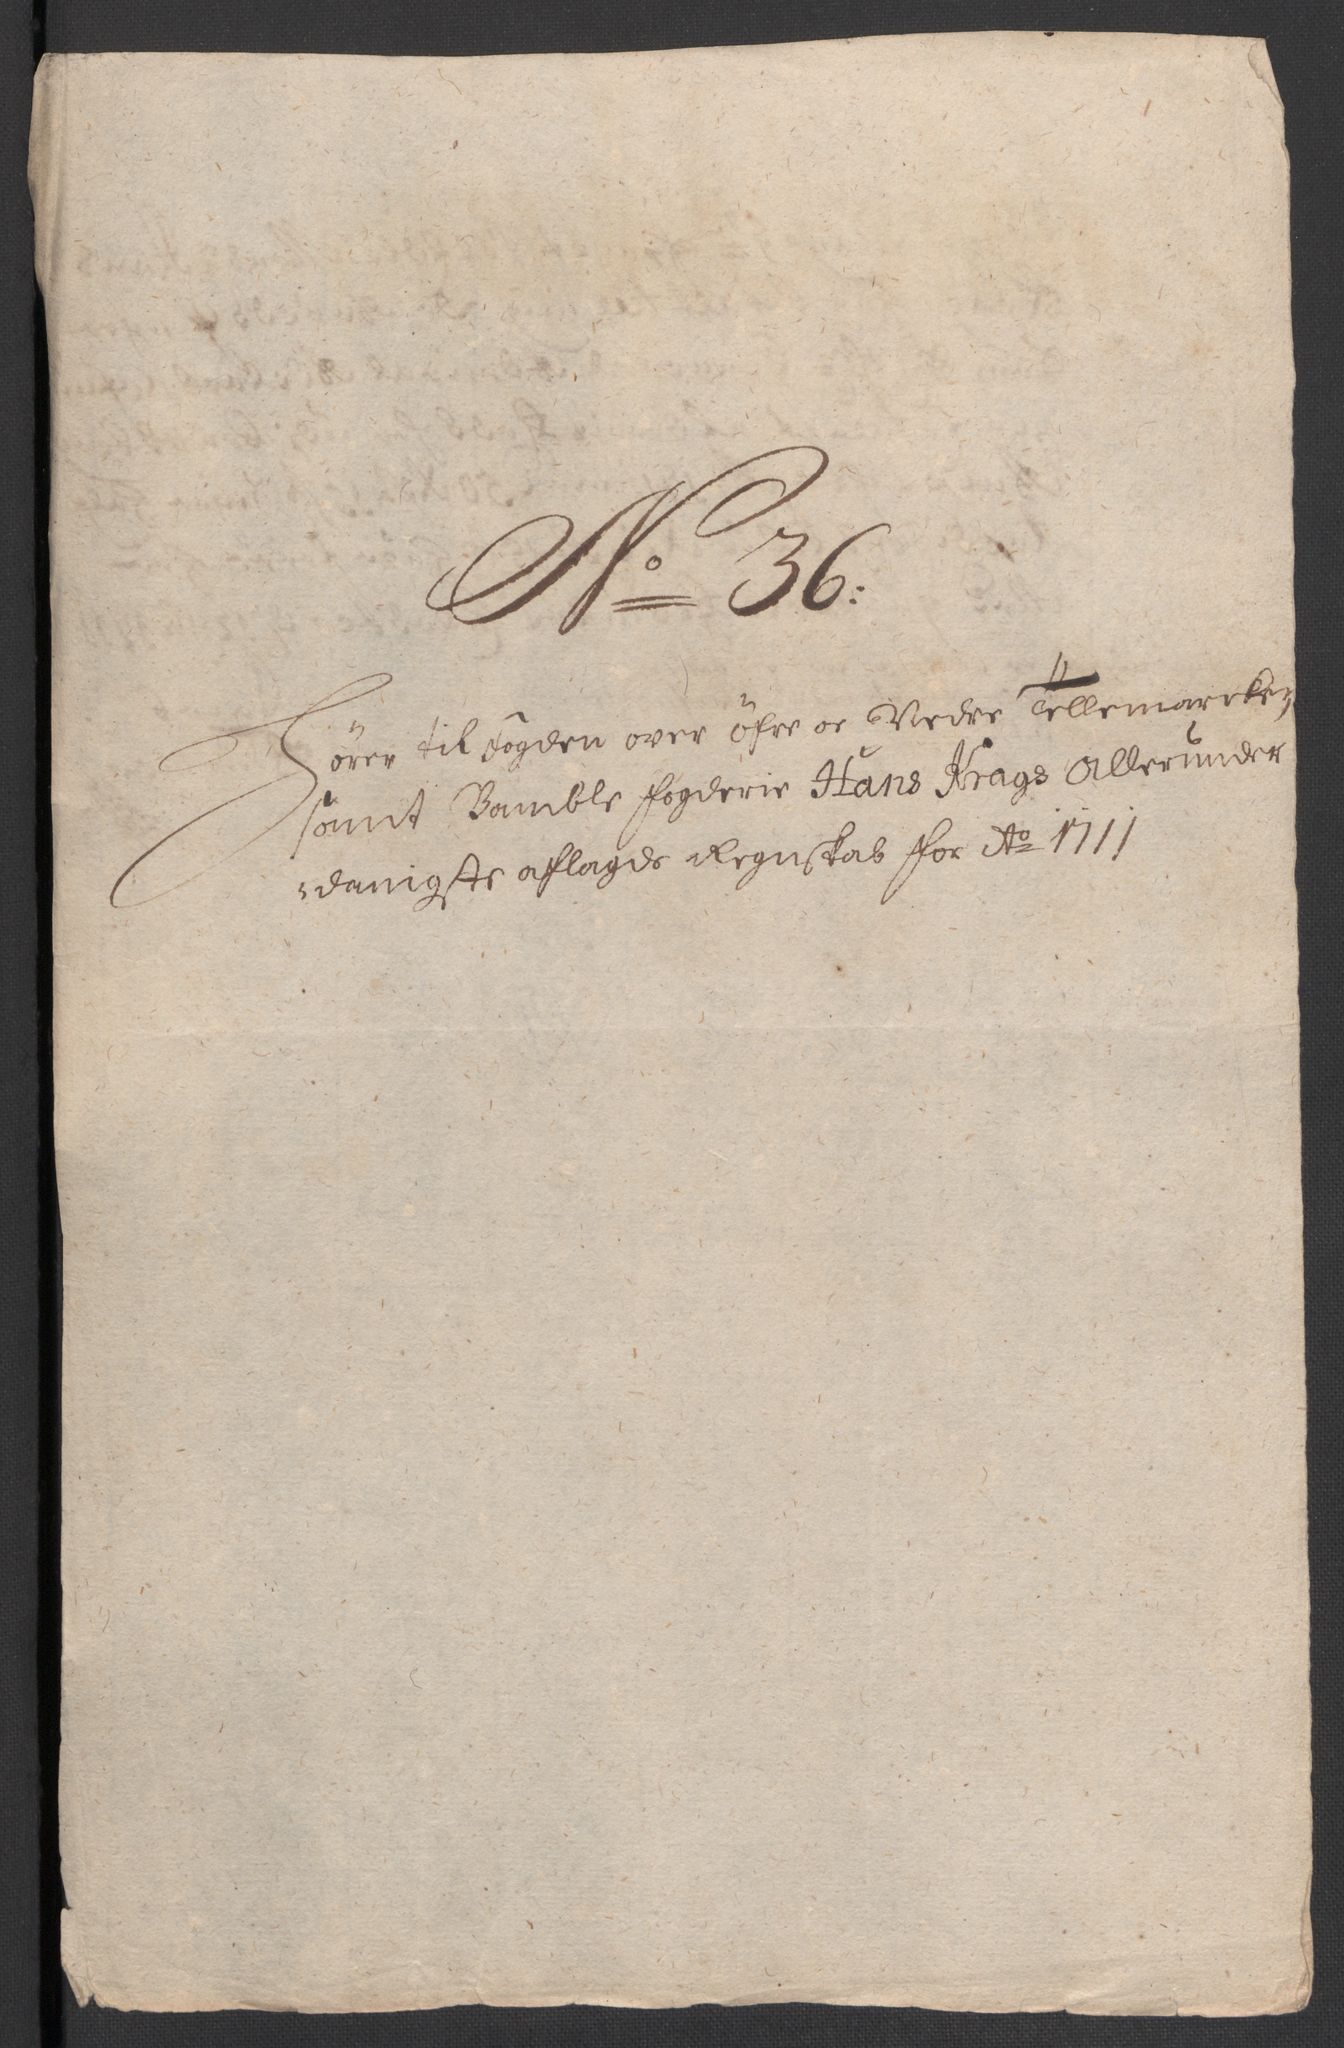 No 36:
Hörer til fogden over öfre oc Nedre Tellemarcken
samt Bamble fogderie Hans Krags Allerunder
danigste aflagde Regnskab for Ao 1711